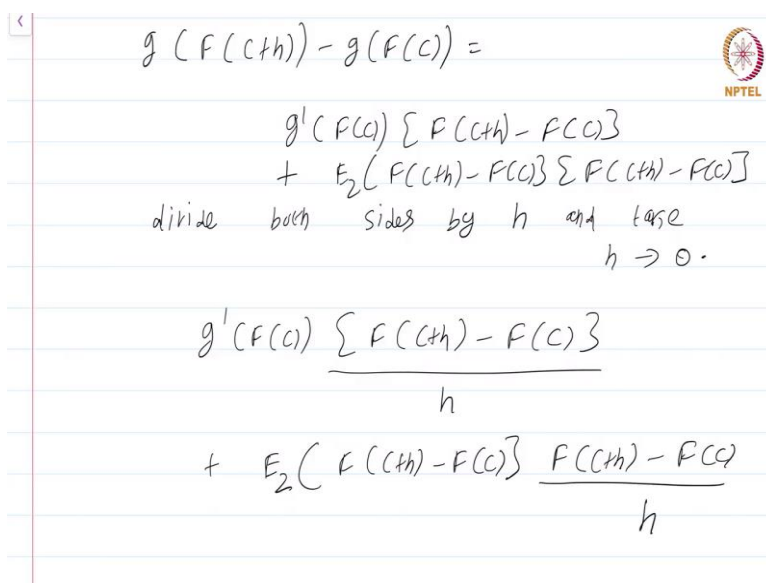 g (F(c+h)) - g(F(c)) =
NPTEL
g'(F(c)) { F(c+h) - F(c)}
+ E₂( F(c+h) - F(c)} { F(c+h) - F(c)}
divide both sides by h and take
h → 0.
g'(F(c)) { F(c+h) - F(c)}
h
+ E₂( F(c+h) - F(c)} F(c+h) - F(c)
h